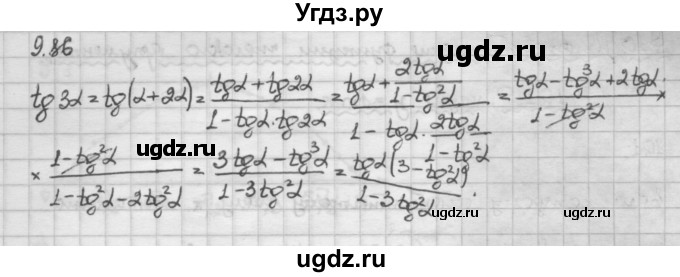 Угдз.ру
9.86
tg 3α = tg(α + 2α) = (tgα + tg2α)/(1 - tgα · tg2α) = (tgα + 2tgα/(1 - tg²α))/(1 - tgα · 2tgα/(1 - tg²α)) = (tgα - tg³α + 2tgα)/(1 - tg²α) ×
× (1 - tg²α)/(1 - tg²α - 2tg²α) = (3tgα - tg³α)/(1 - 3tg²α) = tgα(3 - tg²α)/(1 - 3tg²α).
uGdz.ru
uGdz.ru
uGdz.ru
uGdz.ru
uGdz.ru